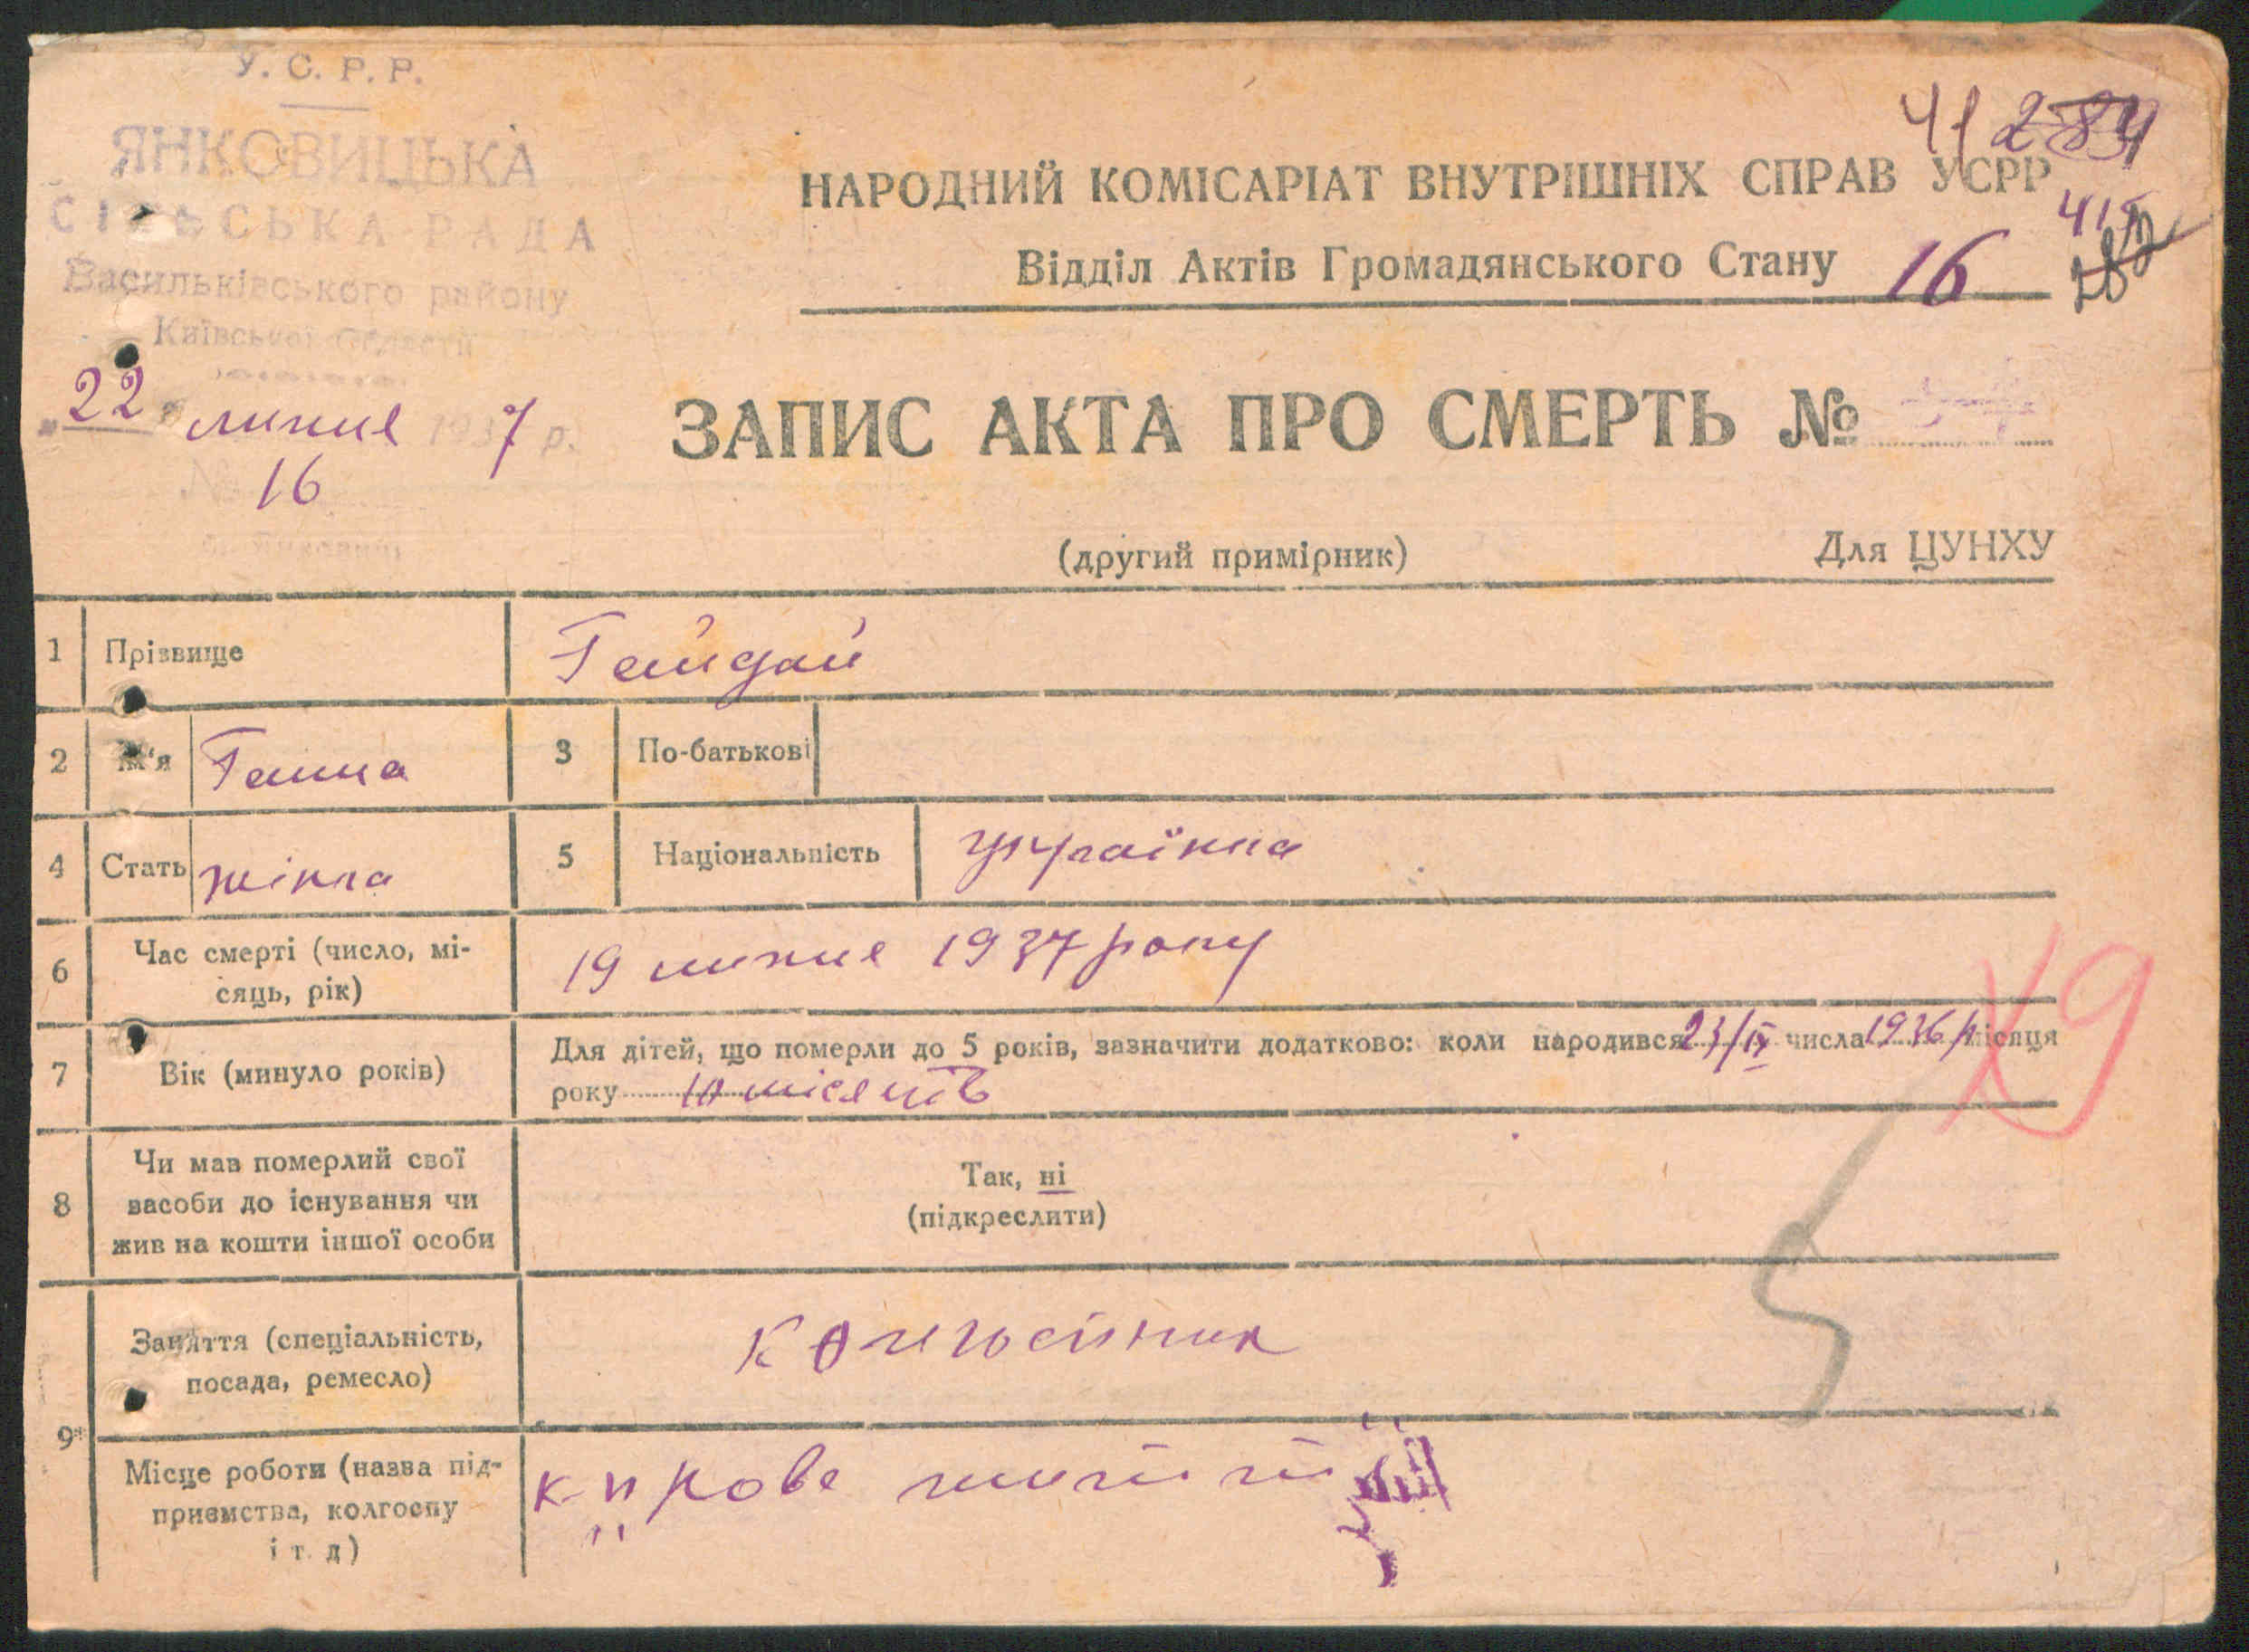 У. С. Р. Р.
ЯНКОВИЦЬКА
СІЛЬСЬКА РАДА
Васильківського району
Київської Області
"22" липня 1937 р.
№ 16
412
НАРОДНИЙ КОМІСАРІАТ ВНУТРІШНІХ СПРАВ УСРР
Відділ Актів Громадянського Стану 16
ЗАПИС АКТА ПРО СМЕРТЬ №
(другий примірник) Для ЦУНХУ
1 Прізвище Гайдай
2 Ім'я Ганна 3 По-батькові
4 Стать жінка 5 Національність українка
6 Час смерті (число, мі-
сяць, рік) 19 липня 1937 року
7 Вік (минуло років) Для дітей, що померли до 5 років, зазначити додатково: коли народився 23/IX числа 1936 р місяця
року 10 місяців
19
8 Чи мав померлий свої
засоби до існування чи
жив на кошти іншої особи
Так, ні
(підкреслити)
5
9 Заняття (спеціальність,
посада, ремесло) Колгоспник
Місце роботи (назва під-
приємства, колгоспу
і т. д)
к-п Нове життя